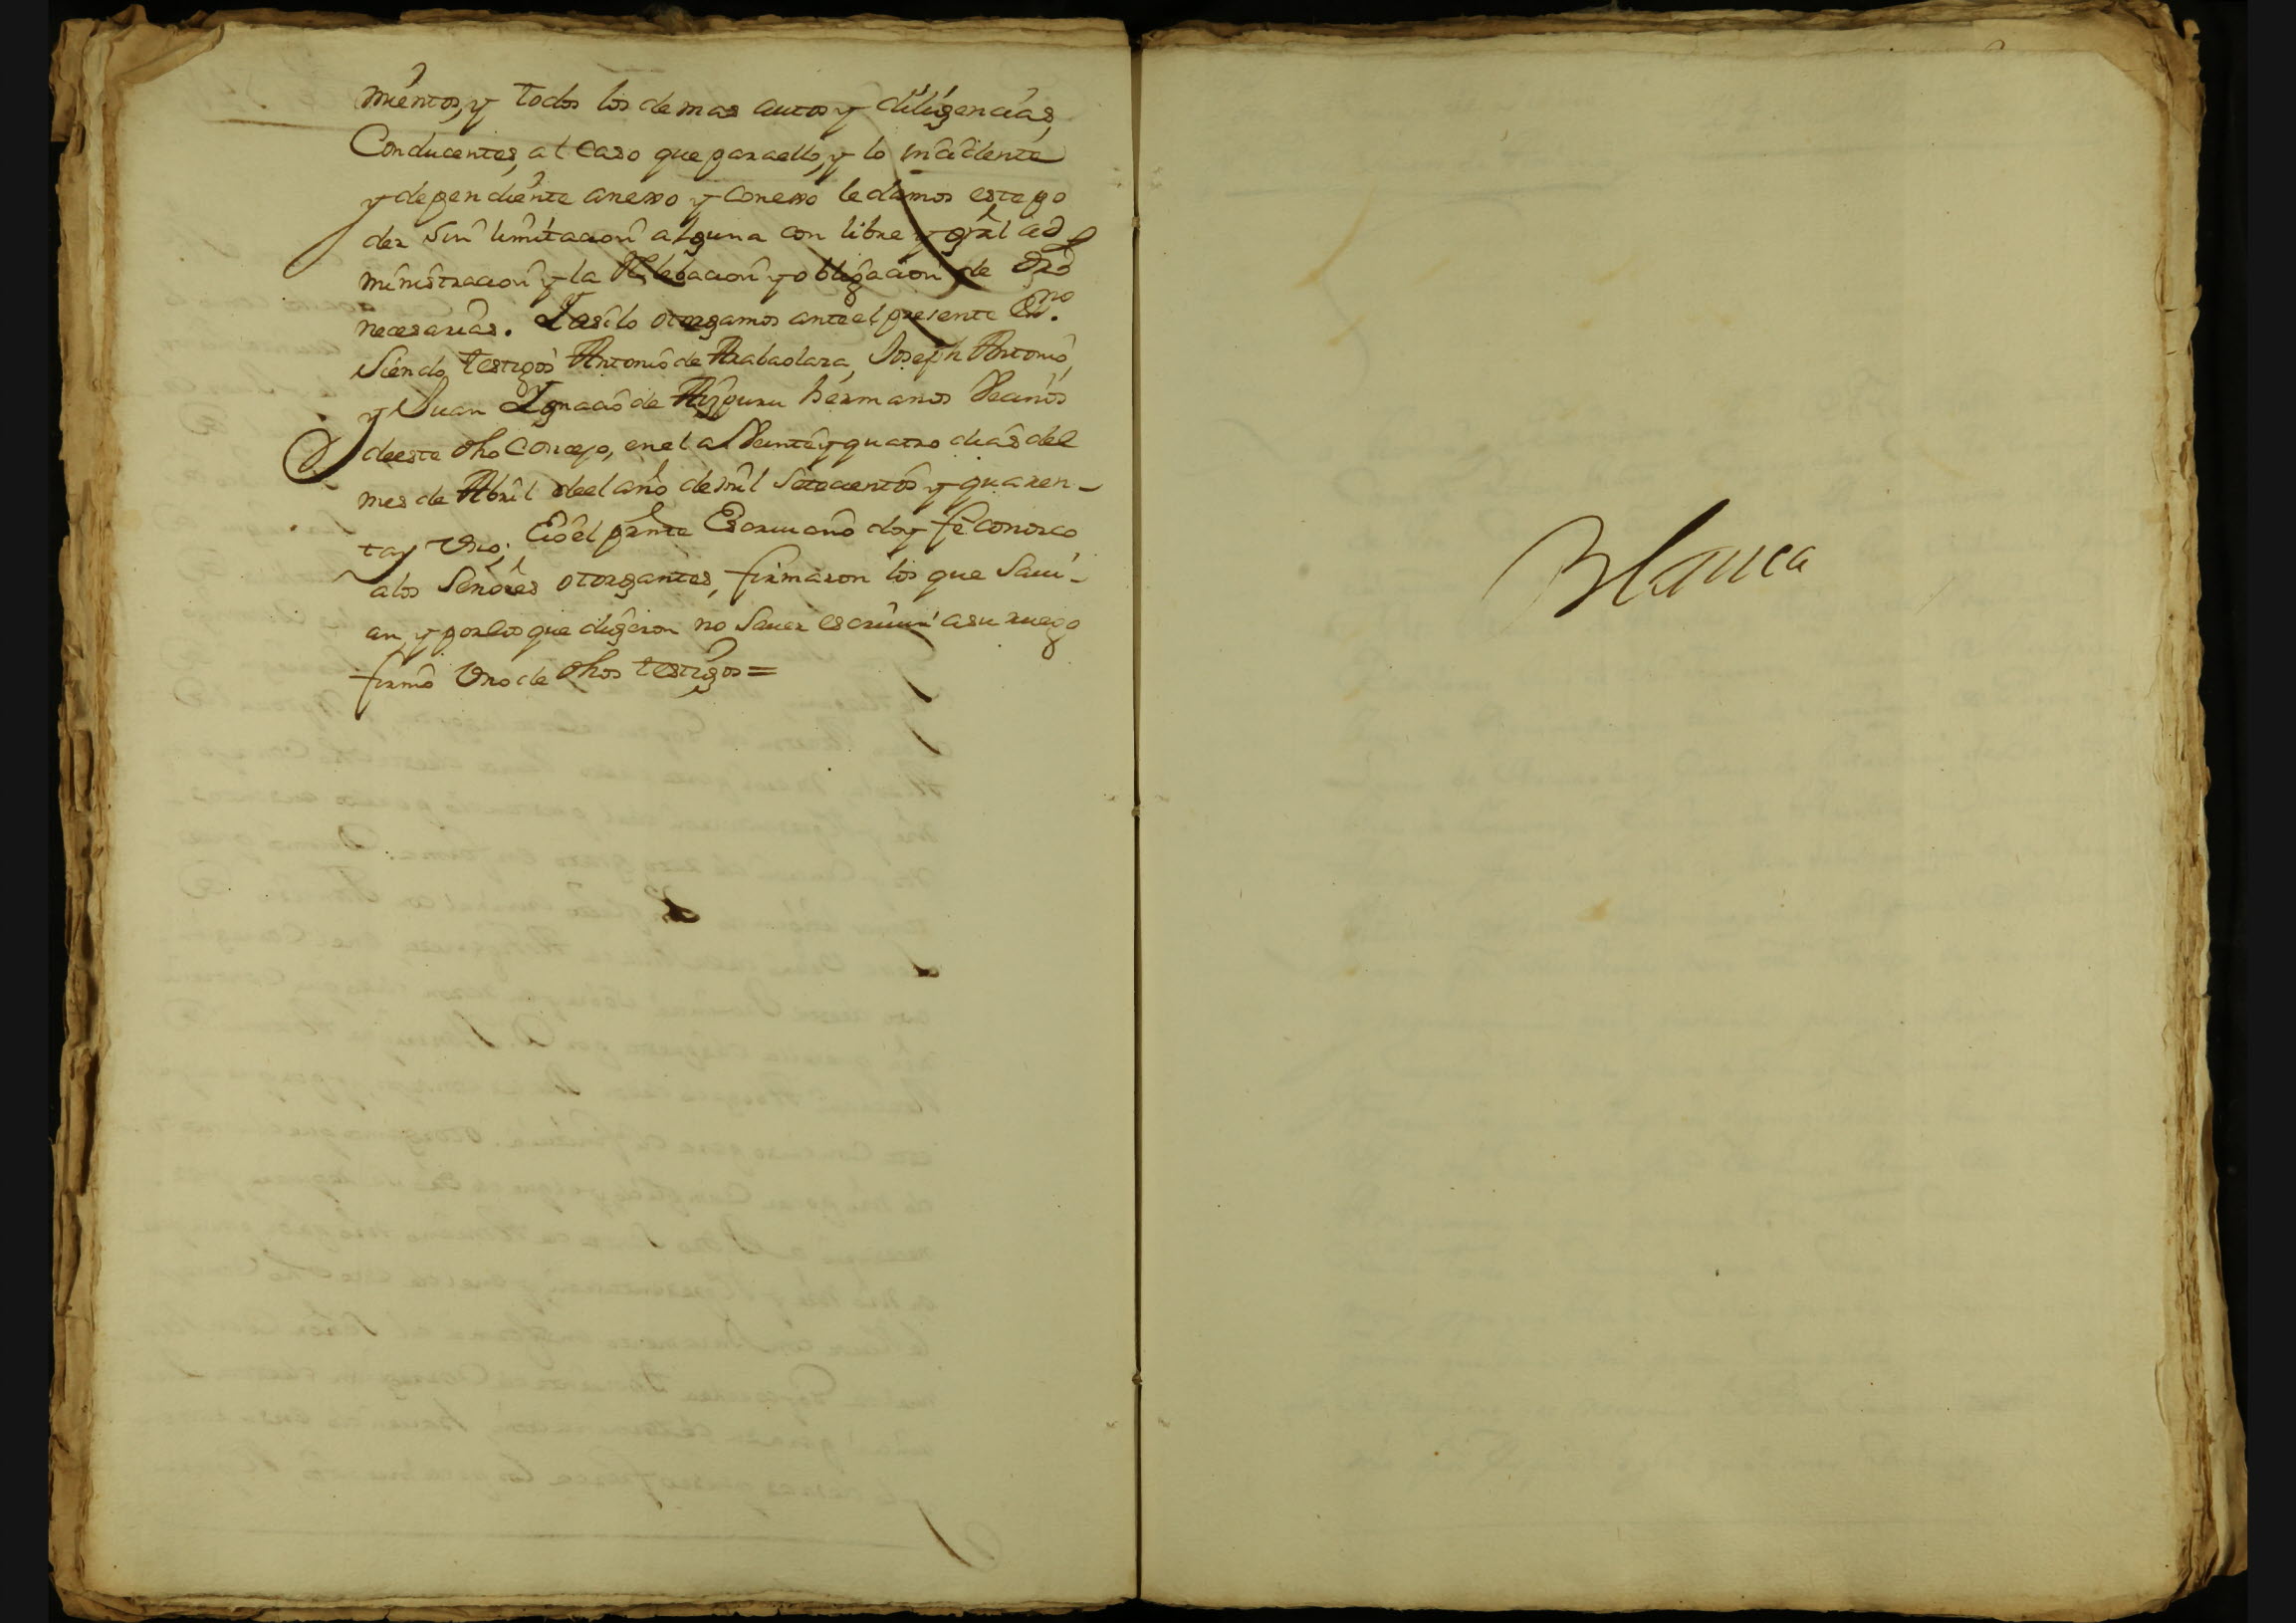 mientos, y todos los demas autos y diligencias,
Conducentes, al caso que para ello, y lo incidente
y dependiente anexso y conexso le damos este po
der sin limitacion alguna con libre y gral ad
ministracion y la Relebacion y obligacion de dro
necesarias. Y asi lo otorgamos ante el presente Essno.
Siendo testigos Antonio de Arabaolaza, Joseph Antonio,
y Juan Ignacio de Aizpuru hermanos Vecinos
de este dho Concejo, en el a Veinte y quatro dias del
mes de Abril de el año de mil Setecientos y quaren-
ta y Uno; E io el prnte Escriuano doy fe conosco
a los Señores otorgantes, firmaron los que saui-
an y por los que digeron no sauer escriuir a su ruego
firmó Uno de dhos testigos =
Blanca